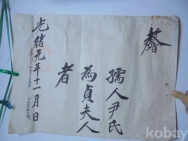 教旨
孺人尹氏
為貞夫人
者
光緒元年十一月日
kobay